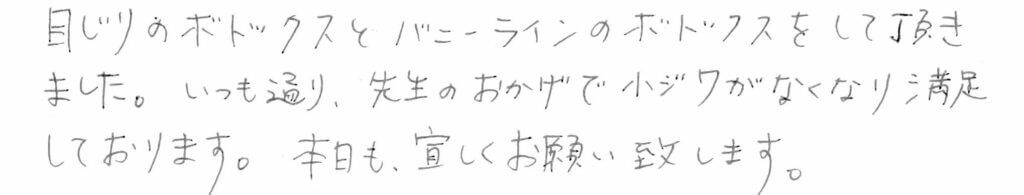 目じりのボトックスとバニーラインのボトックスをして頂き
ました。いつも通り、先生のおかげで小ジワがなくなり満足
しております。本日も、宜しくお願い致します。